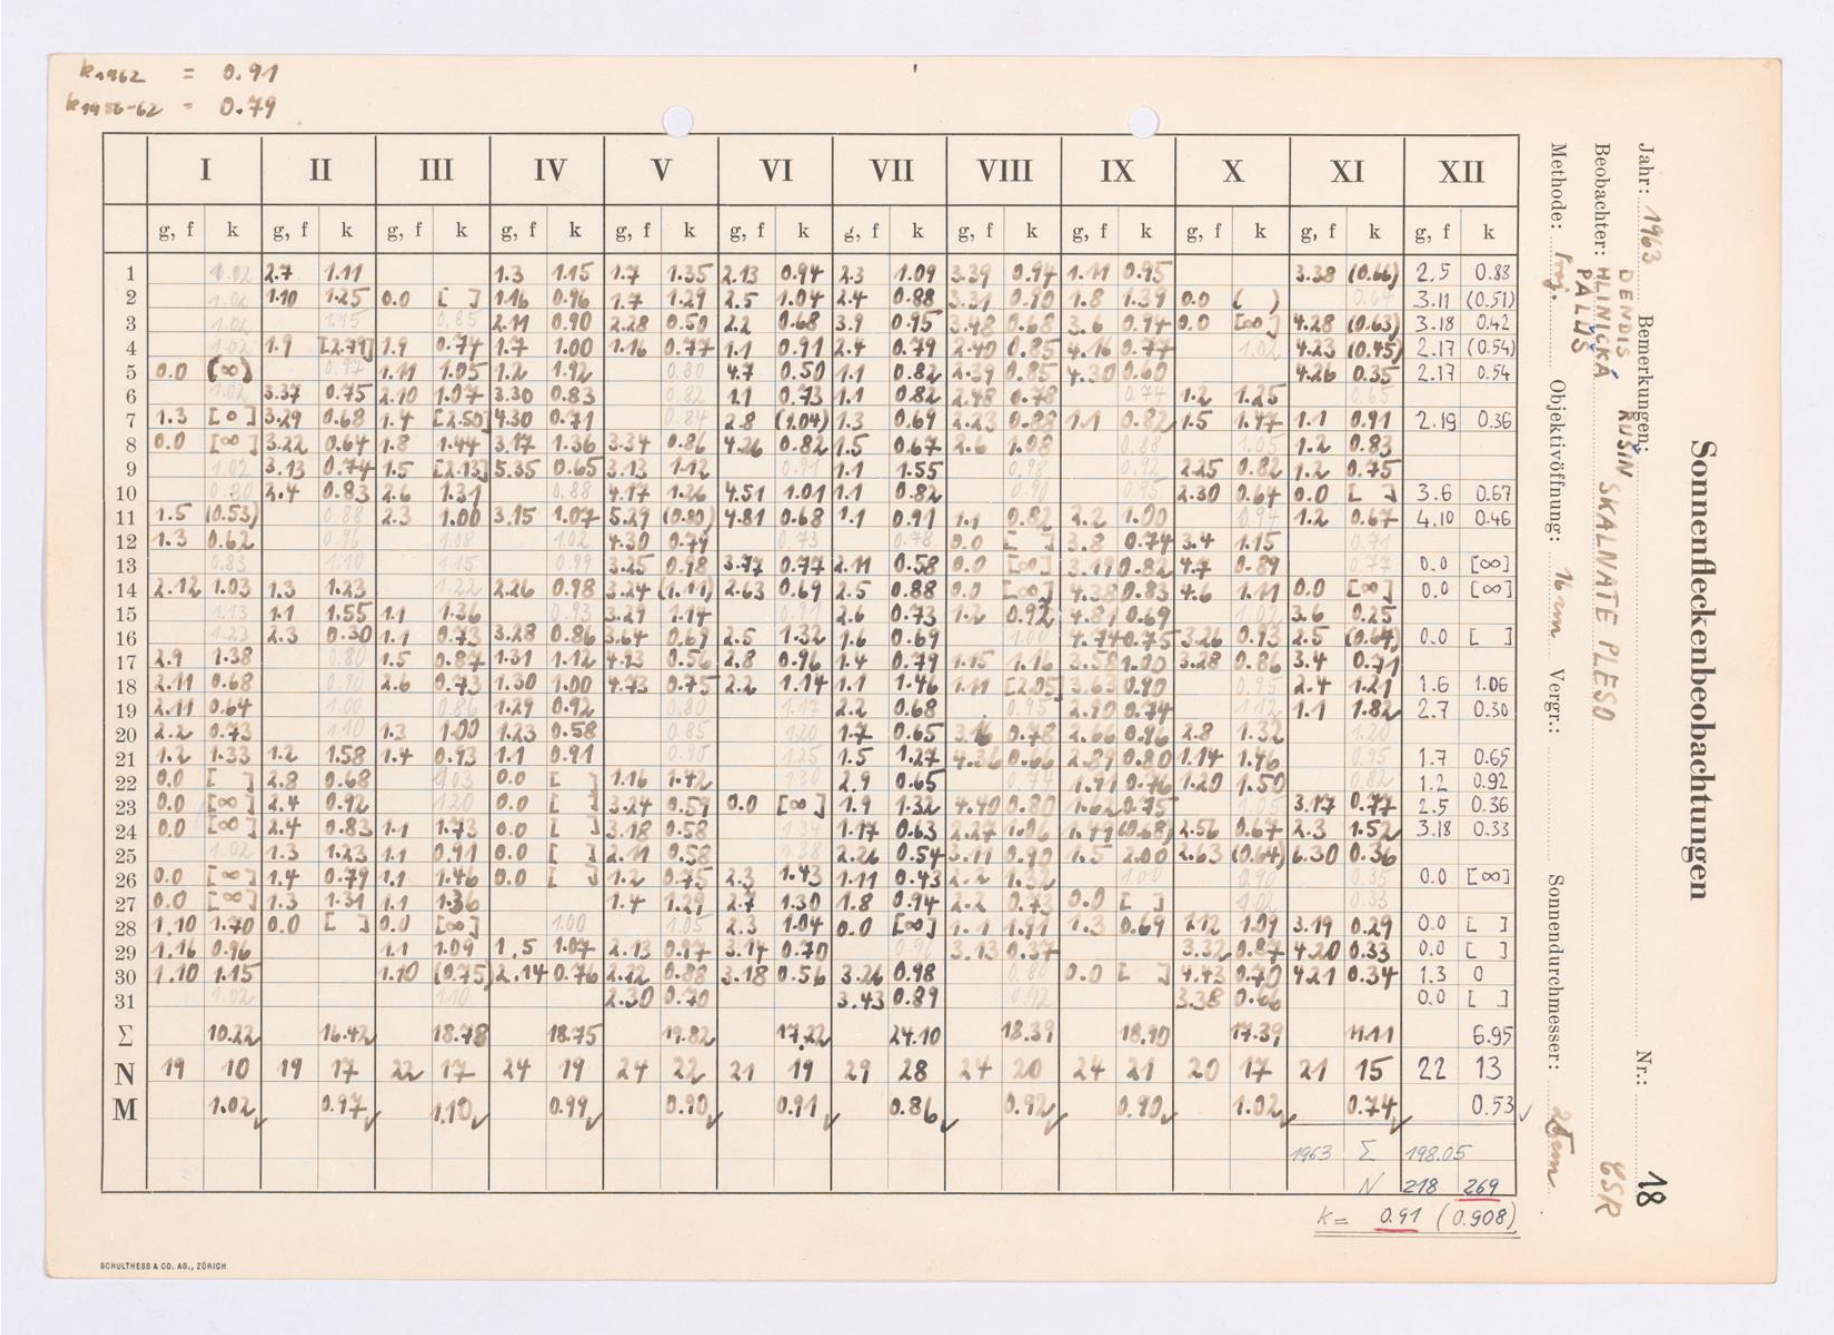 k1962 = 0.91
k1956-62 = 0.79
Sonnenfleckenbeobachtungen
Jahr: 1963 Bemerkungen: Nr.: 18
Beobachter: DENDIS RUŠIN SKALNATE PLESO ČSR
HLINICKÁ
PÁLUŠ
Methode: Proj. Objektivöffnung: 16 cm Vergr.: Sonnendurchmesser: 25 cm
I II III IV V VI VII VIII IX X XI XII
g, f k g, f k g, f k g, f k g, f k g, f k g, f k g, f k g, f k g, f k g, f k g, f k
1 1.02 2.7 1.11 1.3 1.15 1.7 1.35 2.13 0.94 2.3 1.09 3.39 0.94 1.11 0.95 3.38 (0.66) 2.5 0.88
2 1.02 1.10 1.25 0.0 [ ] 1.16 0.96 1.7 1.29 2.5 1.04 2.4 0.88 3.31 0.90 1.8 1.39 0.0 ( ) 0.64 3.11 (0.51)
3 1.02 1.15 0.85 2.11 0.90 2.28 0.50 2.2 0.68 3.9 0.95 3.48 0.68 3.6 0.94 0.0 [∞] 4.28 (0.63) 3.18 0.42
4 1.02 1.9 [2.79] 1.9 0.74 1.7 1.00 1.16 0.77 1.1 0.91 2.4 0.79 2.40 0.85 4.16 0.77 1.02 4.23 (0.45) 2.17 (0.54)
5 0.0 (∞) 0.97 1.11 1.05 1.2 1.92 0.80 4.7 0.50 1.1 0.82 2.39 0.85 4.30 0.60 4.26 0.35 2.17 0.54
6 1.02 3.37 0.75 2.10 1.07 3.30 0.83 0.82 1.1 0.73 1.1 0.82 2.48 0.78 0.74 1.2 1.25 0.65
7 1.3 [0] 3.29 0.68 1.4 [2.50] 4.30 0.71 0.84 2.8 (1.04) 1.3 0.69 2.23 0.88 1.1 0.82 1.5 1.47 1.1 0.91 2.19 0.36
8 0.0 [∞] 3.22 0.64 1.8 1.44 3.17 1.36 3.34 0.86 4.26 0.82 1.5 0.67 2.6 1.08 0.88 1.05 1.2 0.83
9 1.02 3.13 0.74 1.5 [2.13] 5.35 0.65 3.13 1.12 0.91 1.1 1.55 0.98 0.92 2.25 0.82 1.2 0.75
10 0.80 2.4 0.83 2.6 1.31 0.88 4.17 1.26 4.51 1.01 1.1 0.82 0.90 0.95 2.30 0.64 0.0 [ ] 3.6 0.67
11 1.5 (0.53) 0.88 2.3 1.00 3.15 1.07 5.29 (0.80) 4.81 0.68 1.1 0.91 1.1 0.82 2.2 1.00 0.94 1.2 0.67 4.10 0.46
12 1.3 0.62 0.96 1.08 1.02 4.30 0.79 0.73 0.78 0.0 [ ] 3.8 0.74 3.4 1.15 0.71
13 0.83 1.10 1.15 0.99 3.25 0.98 3.77 0.77 2.11 0.58 0.0 [∞] 3.19 0.82 4.7 0.89 0.77 0.0 [∞]
14 2.12 1.03 1.3 1.23 1.22 2.26 0.98 3.24 (1.11) 2.63 0.69 2.5 0.88 0.0 [∞] 4.38 0.83 4.6 1.11 0.0 [∞] 0.0 [∞]
15 1.13 1.1 1.55 1.1 1.36 0.93 3.29 1.14 0.91 2.6 0.73 1.2 0.92 4.81 0.69 1.02 3.6 0.25
16 1.23 2.3 0.30 1.1 0.73 3.28 0.86 3.64 0.69 2.5 1.32 1.6 0.69 1.00 4.74 0.75 3.26 0.93 2.5 (0.64) 0.0 [ ]
17 2.9 1.38 0.80 1.5 0.87 1.31 1.12 4.93 0.56 2.8 0.96 1.4 0.79 1.15 1.16 3.58 1.00 3.28 0.86 3.4 0.71
18 2.11 0.68 0.90 2.6 0.73 1.30 1.00 4.73 0.75 2.2 1.14 1.1 1.46 1.11 [2.05] 3.63 0.90 0.95 2.4 1.21 1.6 1.06
19 2.11 0.64 1.00 0.86 1.29 0.92 0.80 1.17 2.2 0.68 0.95 2.90 0.74 1.12 1.1 1.82 2.7 0.30
20 2.2 0.73 1.10 1.3 1.00 1.23 0.58 0.85 1.20 1.7 0.65 3.16 0.78 2.66 0.96 2.8 1.32 1.20
21 1.2 1.33 1.2 1.58 1.4 0.93 1.1 0.91 0.90 1.25 1.5 1.27 4.36 0.66 2.89 0.80 1.14 1.46 0.95 1.7 0.65
22 0.0 [ ] 2.8 0.68 1.03 0.0 [ ] 1.16 1.42 1.30 2.9 0.65 0.74 1.91 0.76 1.20 1.50 0.82 1.2 0.92
23 0.0 [∞] 2.4 0.92 1.20 0.0 [ ] 3.24 0.59 0.0 [∞] 1.9 1.32 4.40 0.80 1.62 0.75 1.05 3.17 0.77 2.5 0.36
24 0.0 [∞] 2.4 0.83 1.1 1.73 0.0 [ ] 3.18 0.58 1.34 1.17 0.63 2.27 1.06 1.41 (0.68) 2.56 0.67 2.3 1.52 3.18 0.33
25 1.02 1.3 1.23 1.1 0.91 0.0 [ ] 2.11 0.58 1.38 2.26 0.54 3.11 0.90 1.5 2.00 2.63 (0.64) 6.30 0.36
26 0.0 [∞] 1.4 0.79 1.1 1.46 0.0 [ ] 1.2 0.75 2.3 1.43 1.11 0.43 2.2 1.32 1.00 0.90 0.35 0.0 [∞]
27 0.0 [∞] 1.3 1.31 1.1 1.36 1.4 1.29 2.7 1.30 1.8 0.94 2.2 0.73 0.0 [ ] 1.02 0.33
28 1.10 1.70 0.0 [ ] 0.0 [∞] 1.00 1.05 2.3 1.04 0.0 [∞] 1.1 1.91 1.3 0.69 2.12 1.09 3.19 0.29 0.0 [ ]
29 1.16 0.96 1.1 1.09 1.5 1.07 2.13 0.97 3.14 0.70 0.91 3.13 0.37 3.32 0.87 4.20 0.33 0.0 [ ]
30 1.10 1.15 1.10 (0.75) 2.14 0.76 2.22 0.88 3.18 0.56 3.26 0.98 0.80 0.0 [ ] 4.43 0.70 4.21 0.34 1.3 0
31 1.02 1.10 2.30 0.70 3.43 0.89 0.92 3.38 0.66 0.0 [ ]
Σ 10.22 16.42 18.78 18.75 19.82 17.22 24.10 18.39 18.90 17.39 11.11 6.95
N 19 10 19 17 22 17 24 19 24 22 21 19 29 28 24 20 24 21 20 17 21 15 22 13
M 1.02 0.97 1.10 0.99 0.90 0.91 0.86 0.92 0.90 1.02 0.74 0.53
1963 Σ 198.05
N 218 269
k = 0.91 (0.908)
SCHULTHESS & CO. AG., ZÜRICH